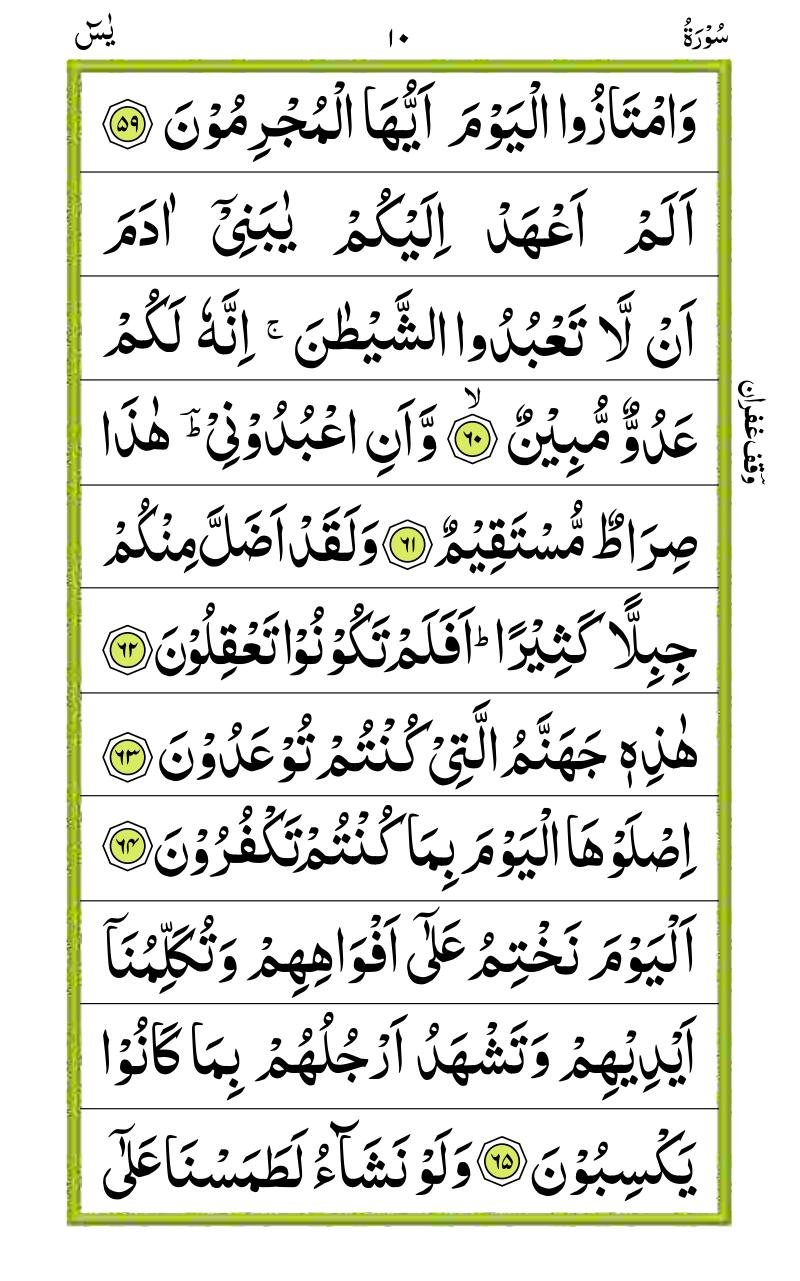 سُوْرَةُ ١٠ يٰسٓ
وَامْتَازُوا الْيَوْمَ اَيُّهَا الْمُجْرِمُوْنَ ۵۹
اَلَمْ اَعْهَدْ اِلَيْكُمْ يٰبَنِيْۤ اٰدَمَ
اَنْ لَّا تَعْبُدُوا الشَّيْطٰنَ ۚ اِنَّهٗ لَكُمْ
عَدُوٌّ مُّبِيْنٌ ۙ ۶۰ وَّاَنِ اعْبُدُوْنِيْ ؔؕ هٰذَا
وقف غفران
صِرَاطٌ مُّسْتَقِيْمٌ ۶۱ وَلَقَدْ اَضَلَّ مِنْكُمْ
جِبِلًّا كَثِيْرًا ؕ اَفَلَمْ تَكُوْنُوْا تَعْقِلُوْنَ ۶۲
هٰذِهٖ جَهَنَّمُ الَّتِيْ كُنْتُمْ تُوْعَدُوْنَ ۶۳
اِصْلَوْهَا الْيَوْمَ بِمَا كُنْتُمْ تَكْفُرُوْنَ ۶۴
اَلْيَوْمَ نَخْتِمُ عَلٰۤى اَفْوَاهِهِمْ وَتُكَلِّمُنَاۤ
اَيْدِيْهِمْ وَتَشْهَدُ اَرْجُلُهُمْ بِمَا كَانُوْا
يَكْسِبُوْنَ ۶۵ وَلَوْ نَشَآءُ لَطَمَسْنَا عَلٰۤى